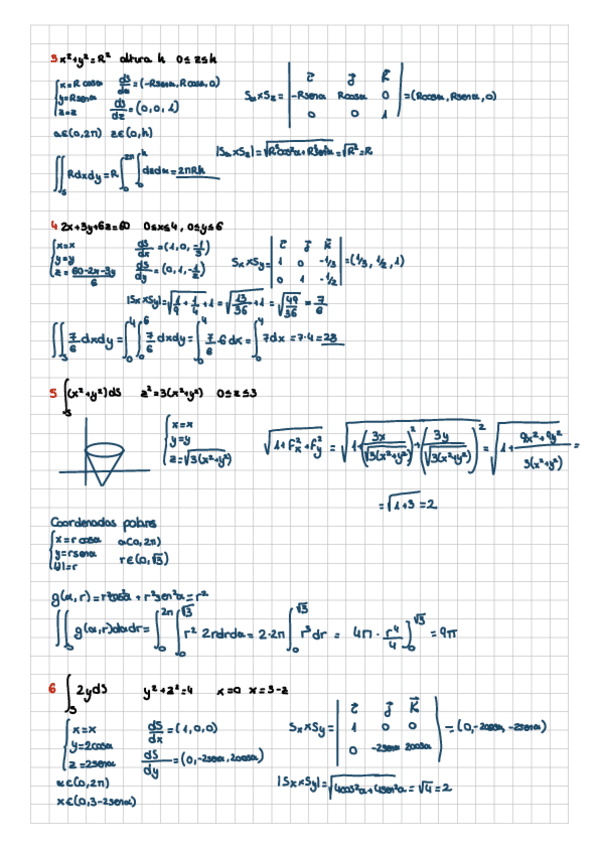 3 x²+y²=R² altura h 0≤z≤h
{x=Rcosα dS/dα=(-Rsenα, Rcosα, 0)
y=Rsenα dS/dz=(0,0,1)
z=z
Sα×Sz=|i j k; -Rsenα Rcosα 0; 0 0 1|=(Rcosα, Rsenα, 0)
α∈(0,2π) z∈(0,h)
|Sα×Sz|=√(R²cos²α+R²sen²α)=√R²=R
∬s Rdxdy=R∫₀^2π ∫₀^h dzdα=2πRh
4 2x+3y+6z=60 0≤x≤4, 0≤y≤6
{x=x dS/dx=(1,0,-1/3)
y=y dS/dy=(0,1,-1/2)
z=(60-2x-3y)/6
Sx×Sy=|i j k; 1 0 -1/3; 0 1 -1/2|=(1/3, 1/2, 1)
|Sx×Sy|=√(1/9+1/4+1)=√(13/36+1)=√(49/36)=7/6
∬s 7/6 dxdy=∫₀^4 ∫₀^6 7/6 dxdy=∫₀^4 7/6·6dx=∫₀^4 7dx=7·4=28
5 ∫s(x²+y²)dS z²=3(x²+y²) 0≤z≤3
{x=x
y=y
z=√(3(x²+y²))
√(1+fx²+fy²)=√(1+(3x/√(3(x²+y²)))²+(3y/√(3(x²+y²)))²)=√(1+(9x²+9y²)/(3(x²+y²)))=
=√(1+3)=2
Coordenadas polares
{x=rcosα α(0,2π)
y=rsenα r∈(0,√3)
|J|=r
g(α,r)=r²cos²α+r²sen²α=r²
∬ g(α,r)dαdr=∫₀^2π ∫₀^√3 r² 2rdrdα=2·2π∫₀^√3 r³dr=4π·r⁴/4]₀^√3=9π
6 ∫s 2ydS y²+z²=4 x=0 x=3-z
{x=x dS/dx=(1,0,0)
y=2cosα dS/dy=(0,-2senα,2cosα)
z=2senα
Sx×Sy=|i j k; 1 0 0; 0 -2senα 2cosα|=(0,-2cosα,-2senα)
α∈(0,2π)
|Sx×Sy|=√(4cos²α+4sen²α)=√4=2
x∈(0,3-2senα)